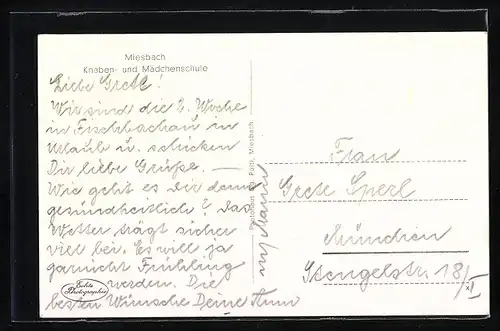 Miesbach
Knaben- und Mädchenschule
Liebe Grete!
Wir sind die 2. Woche
in Fischbachau in
Urlaub u. schicken
Dir liebe Grüße. —
Wie geht es Dir denn
gesundheitlich? Das
Wetter trägt sicher
viel bei. Es will ja
garnicht Frühling
werden. Die
besten Wünsche Deine Anni
Echte
Photographie
Miesbach
Frau
Grete Sperl
München
Stengelstr. 18/I